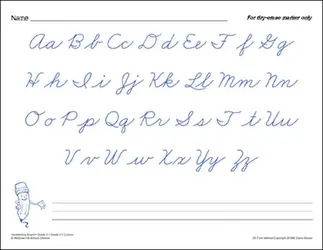 Name
For dry-erase marker only
Aa Bb Cc Dd Ee Ff Gg
Hh Ii Jj Kk Ll Mm Nn
Oo Pp Qq Rr Ss Tt Uu
Vv Ww Xx Yy Zz